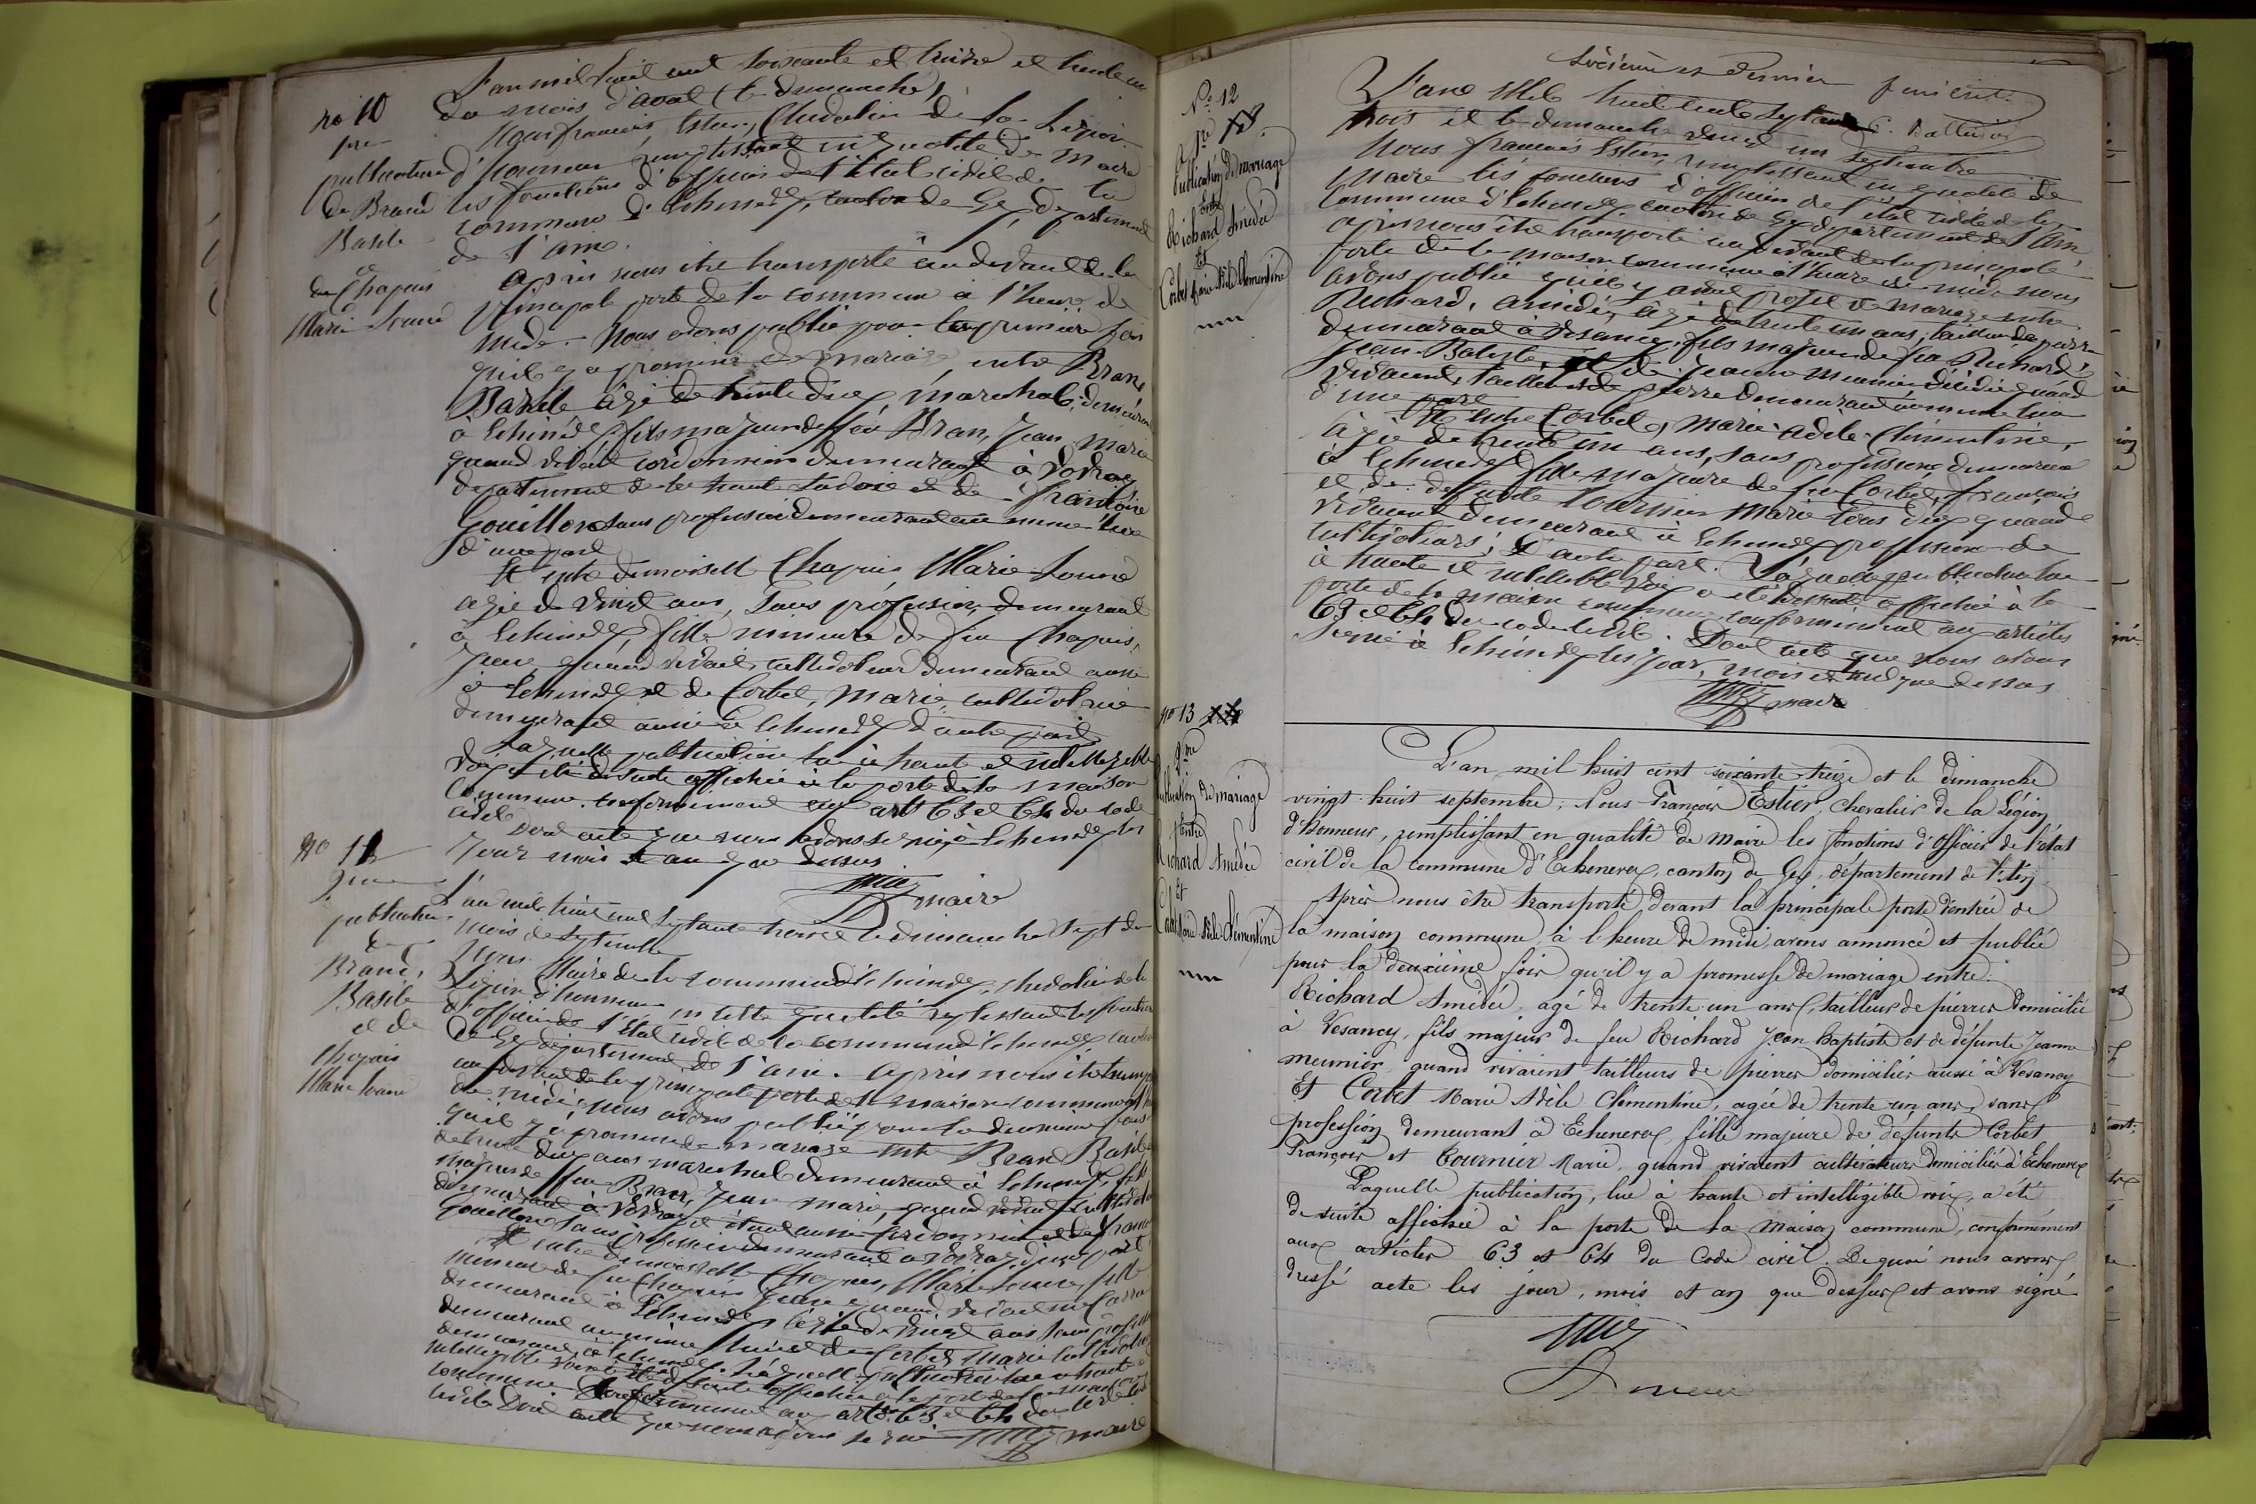 no 10
1re
publication
de Brand
Basile
et
de Chapuis
Marie Louise
L'an mil huit cent soixante et treize et trente un
du mois d'aout (le dimanche)
Nous françois Estier, Chevalier de la Légion
d'honneur remplissant en qualité de Maire
les fonctions d'officier de l'état civil de la
commune d'Echenevex, canton de Gex, département
de l'ain.
après nous être transporté au devant de la
principale porte de la commune à l'heure de
midi. Nous avons publié pour la première fois
qu'il y a promesse de mariage, entre Brand
Basile âgé de trente deux, maréchal, demeurant
à Echenevex, fils majeur de feu Bran, Jean Marie
quand vivait cordonnier demeurant à Vovray
département de la haute Savoie et de françoise
Gouillon sans profession demeurant au même lieu
d'une part
Et entre demoiselle Chapuis Marie Louise
agée de vingt ans, sans profession, demeurant
à Echenevex, fille mineure de feu Chapuis,
Jean, quand vivait cultivateur demeurant aussi
à Echenevex et de Corbet, Marie, cultivatrice
demeurant aussi à Echenevex d'autre part
Laquelle publication lue à haute et intelligible
voix a été de suite affichée à la porte de la maison
commune conformément aux arts 63 et 64 du code
civil
Dont acte que nous avons signé à Echenevex les
jour mois et an que dessus
maire
no 11
2me
publication
de
Brand,
Basile
et de
Chapuis
Marie Louise
L'an mil huit cent septante treize le dimanche sept du
mois de septembre
Nous Maire de la commune d'Echenevex, chevalier de la
Légion d'honneur en cette qualité remplissant les fonctions
d'officier de l'état civil de la commune d'Echenevex canton
de Gex département de l'ain. après nous être transporté
au devant de la principale porte de la maison commune à l'heure
de midi, nous avons publié pour la deuxième fois
qu'il y a promesse de mariage entre Brand Basile
de trente deux ans maréchal demeurant à Echenevex, fils
majeur de feu Bran, Jean Marie, quand vivait cultivateur
demeurant à Vovray et étant aussi cordonnier et de françoise
Gouillon sans profession demeurant à Vovray d'une part
Et entre demoiselle Chapuis, Marie Louise, fille
mineure de feu Chapuis Jean quand vivait
demeurant à Echenevex agée de vingt ans sans profession
demeurant au même lieu et de Corbet Marie cultivatrice
demeurant à Echenevex. Laquelle publication lue à haute et
intelligible voix a été de suite affichée à la porte de la maison
commune conformément aux arts 63 et 64 du code
civil Dont acte que nous avons signé maire
No 12
1re
Publication de mariage
Entre
Richard Amédée
Et
Corbet Marie Adèle Clémentine
dernier feuillet
L'an Mil huit cent septante
trois et le dimanche vingt un septembre
Nous françois Estier, remplissant en qualité de
Maire les fonctions d'officier de l'état civil de la
Commune d'Echenevex canton de Gex département de l'ain,
après nous être transporté au devant de la principale
porte de la maison commune à l'heure de midi nous
avons publié qu'il y avait projet de mariage entre
Richard, amédée, âgé de trente un ans, tailleur de pierre
demeurant à Vesancy, fils majeur de feu Richard,
Jean-Batiste, et de Jeanne Meunier décédée quand
vivaient tailleurs de pierre demeurant au même lieu
d'une part
Et entre Corbet, Marie-adèle-Clémentine,
âgée de trente un ans, sans profession demeurant
à Echenevex fille majeure de feu Corbet, françois
et de deffunte Tournier Marie tous deux quand
vivaient demeurant à Echenevex profession de
cultivateurs; d'autre part. Laquelle publication lue
à haute et intelligible voix a été de suite affichée à la
porte de la maison commune conformément aux articles
63 et 64 du code civil. Dont acte que nous avons
signé à Echenevex les jour, mois et an que dessus
maire
No 13
2me
Publication de mariage
Entre
Richard Amédée
Et
Corbet Marie Adèle Clémentine
L'an mil huit cent soixante-treize et le dimanche
vingt-huit septembre; Nous François Estier, chevalier de la Légion
d'Honneur, remplissant en qualité de maire les fonctions d'officier de l'état
civil de la commune d'Echenevex, canton de Gex, département de l'Ain.
Après nous être transporté devant la principale porte d'entrée de
la maison commune, à l'heure de midi, avons annoncé et publié
pour la deuxième fois qu'il y a promesse de mariage entre:
Richard Amédée, agé de trente-un ans, tailleur de pierres domicilié
à Vesancy, fils majeur de feu Richard Jean Baptiste et de défunte Jeanne
Meunier, quand vivaient tailleurs de pierres domiciliés aussi à Vesancy
Et Corbet Marie Adèle Clémentine, agée de trente-un ans, sans
profession, demeurant à Echenevex, fille majeure de défunts Corbet
François et Tournier Marie quand vivaient cultivateurs domiciliés à Echenevex
Laquelle publication, lue à haute et intelligible voix, a été
de suite affichée à la porte de la maison commune, conformément
aux articles 63 et 64 du Code civil. De quoi nous avons
dressé acte les jour, mois et an que dessus et avons signé